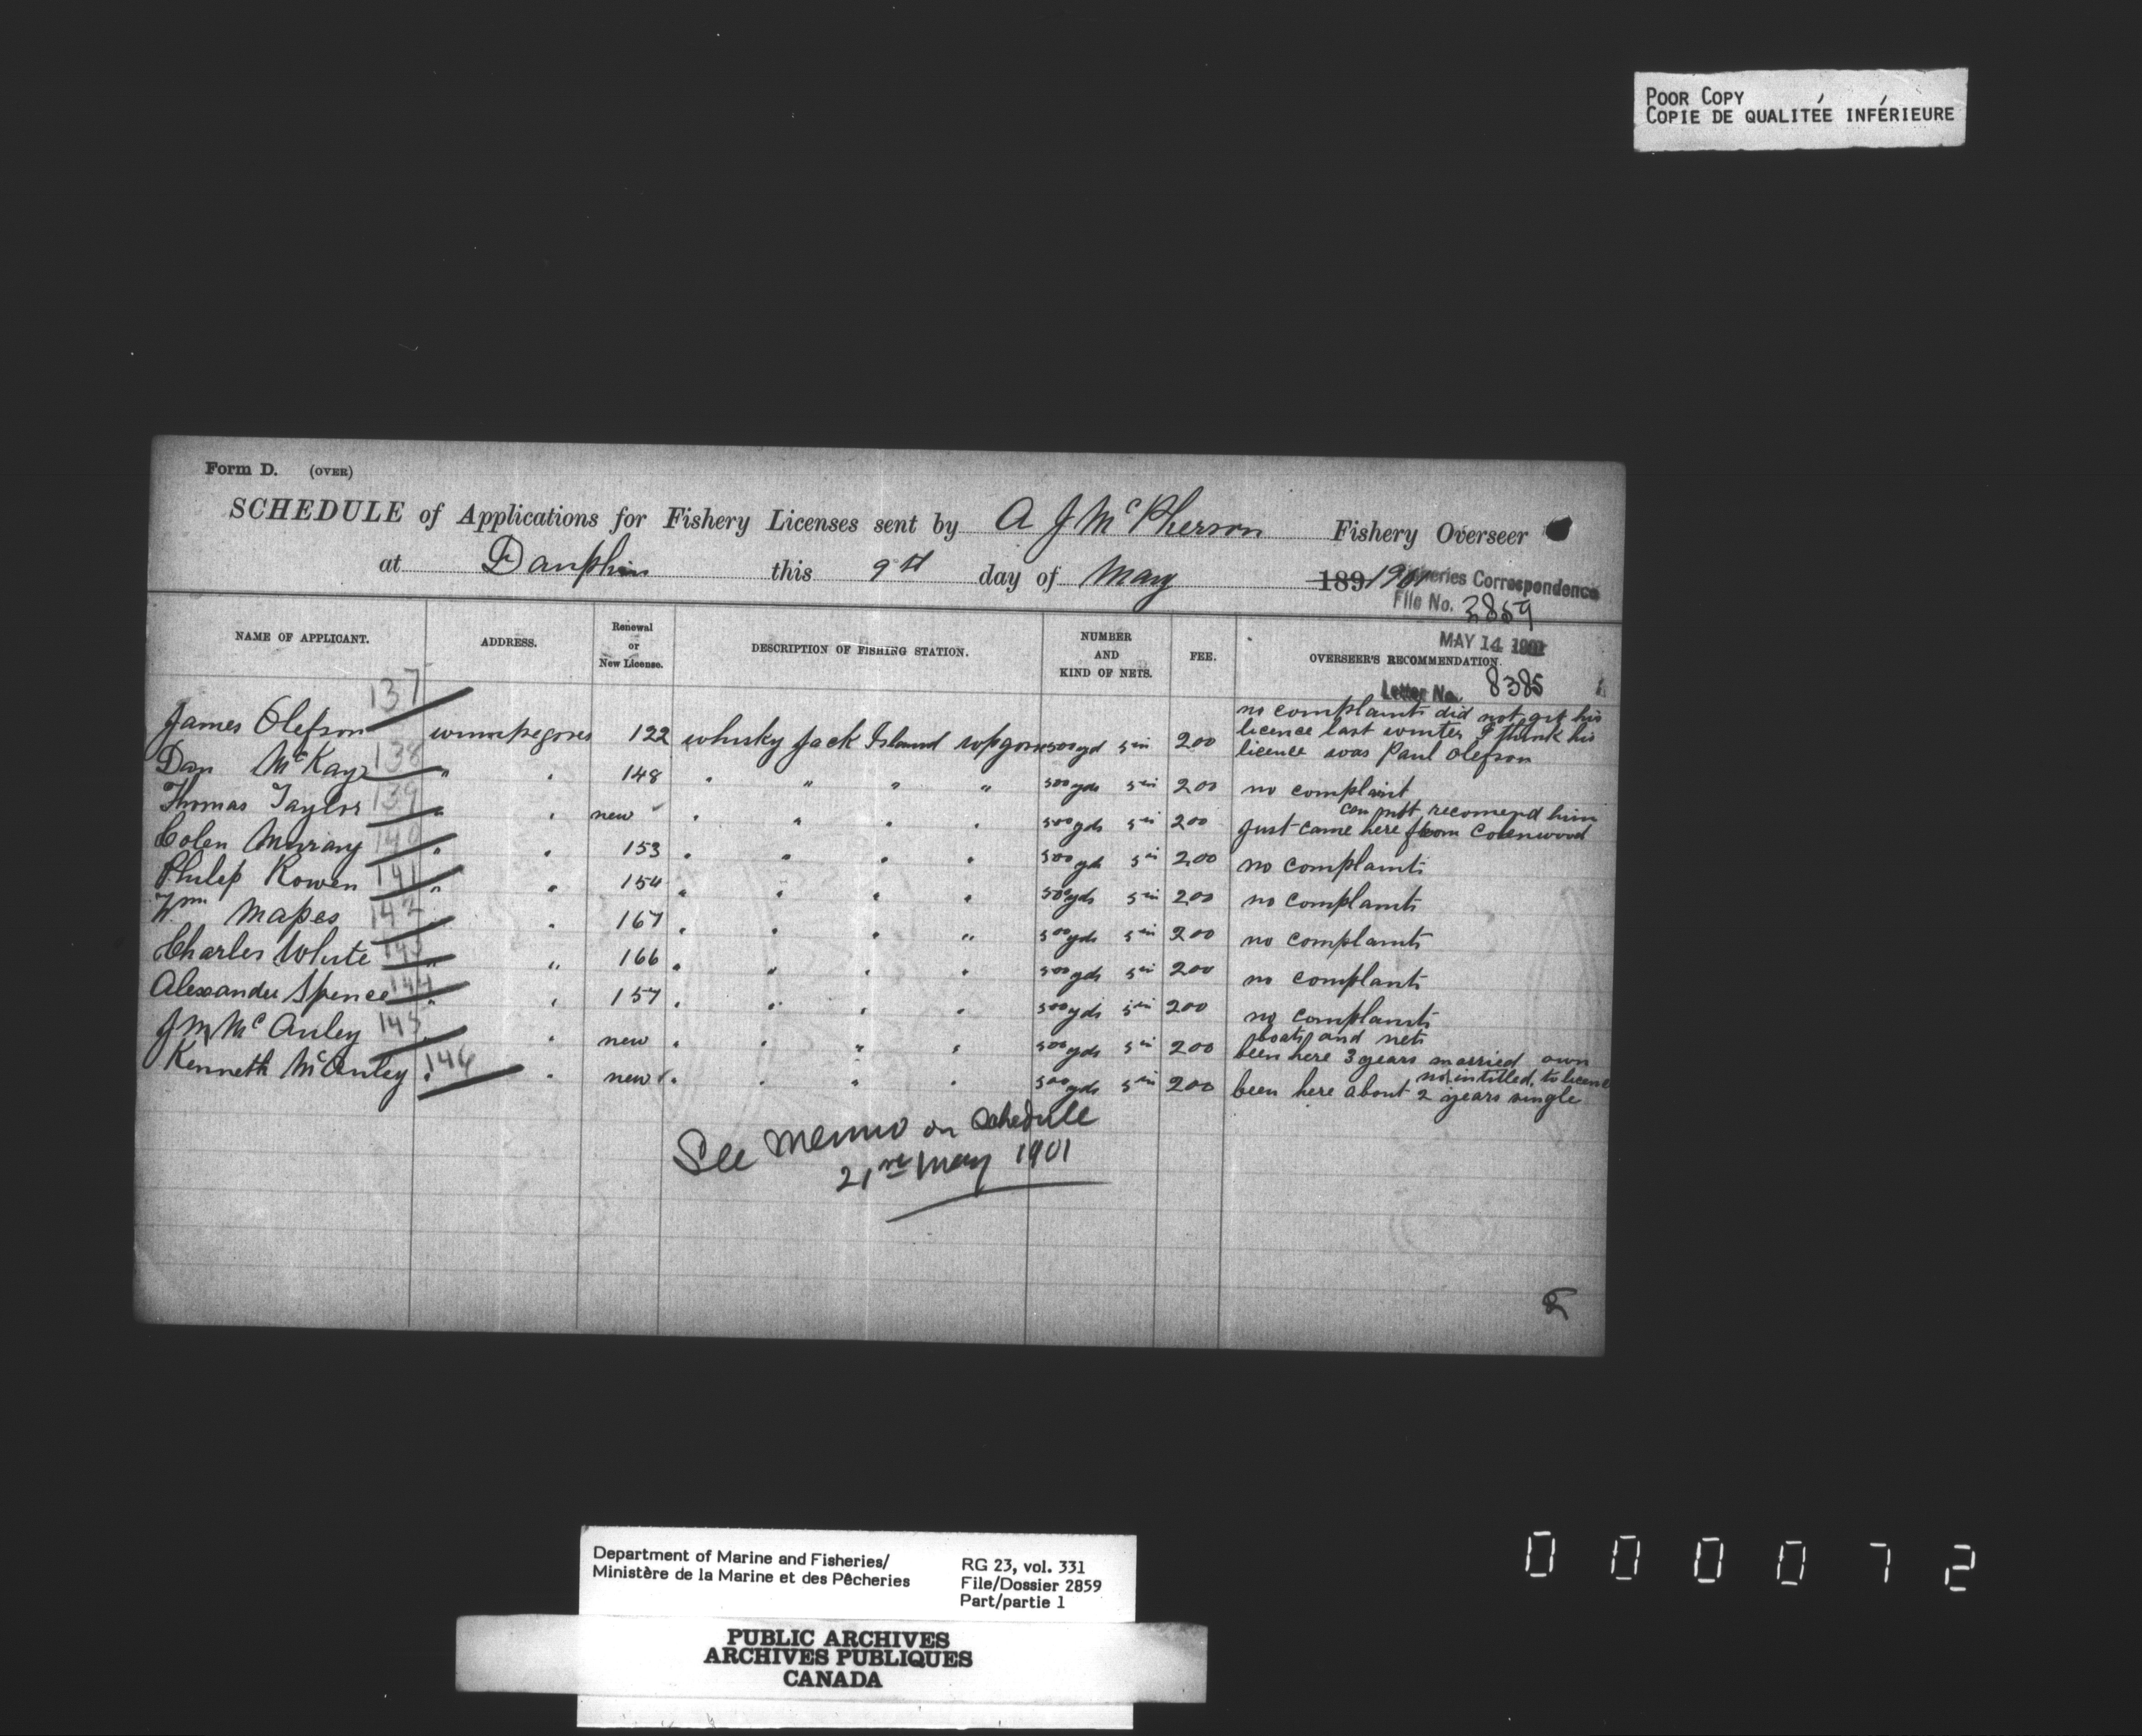 POOR COPY
COPIE DE QUALITÉE INFÉRIEURE
Form D. (OVER)
SCHEDULE of Applications for Fishery Licenses sent by A J McPherson Fishery Overseer
at Dauphin this 9st day of May 189 1901
Fisheries Correspondence
File No. 2859
MAY 14 1901
Letter No. 8385
NAME OF APPLICANT. ADDRESS. Renewal or New License. DESCRIPTION OF FISHING STATION. NUMBER AND KIND OF NETS. FEE. OVERSEER'S RECOMMENDATION.
James Olefson 137 winnipegoses 122 whisky Jack Island wpgoses 500 yd 5 in 200 no complaints did not get his
licence last winter I think his
licence was Paul Olefson
Dan McKay 138 " " 148 " " " " 500 yds 5 in 200 no complaint
Thomas Taylor 139 " " new " " " " 500 yds 5 in 200 can not recomend him
Just came here from Colenwood
Colen Murray 140 " " 153 " " " " 500 yds 5 in 200 no complaints
Philip Rowen 141 " " 154 " " " " 500 yds 5 in 200 no complaints
Wm Mapes 142 " 167 " " " " 500 yds 5 in 200 no complaints
Charles White 143 " " 166 " " " " 500 yds 5 in 200 no complants
Alexander Spence 144 " " 157 " " " " 500 yds 5 in 200 no complaints
J M McAuley 145 " " new " " " " 500 yds 5 in 200 been here 3 years married own
boats and nets
Kenneth McAuley 146 " " new " " " " 500 yds 5 in 200 been here about 2 years single
not intitled to licence
See memo on schedule
21st May 1901
Department of Marine and Fisheries/
Ministère de la Marine et des Pêcheries
RG 23, vol. 331
File/Dossier 2859
Part/partie 1
PUBLIC ARCHIVES
ARCHIVES PUBLIQUES
CANADA
000072